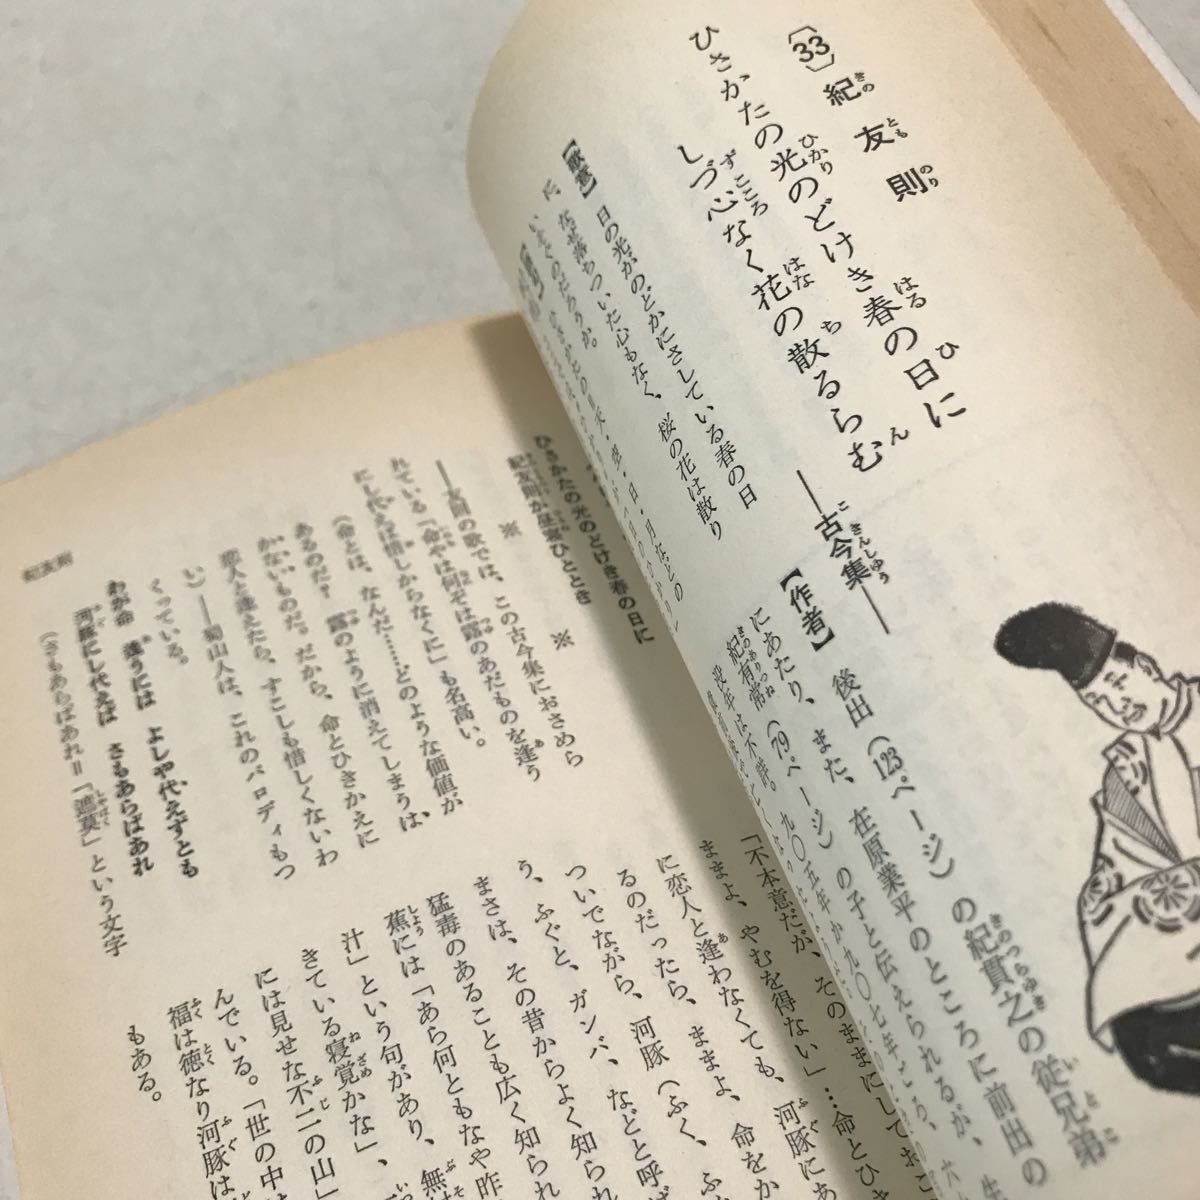 〔33〕紀友則
ひさかたの光のどけき春の日に
しづ心なく花の散るらむ
――古今集――
【歌意】 日の光がのどかにさしている春の日
に、なぜ落ちついた心もなく、桜の花は散り
いそぐのだろうか。
【作者】 後出(123ページ)の紀貫之の従兄弟
にあたり、また、在原業平のところに前出の
紀有常(79ページ)の子と伝えられるが、
没年は不詳。
ひさかたの光のどけき春の日に
紀友則が昼寝ひととき
※ ※
――友則の歌では、この古今集におさめら
れている「命やは何ぞは露のあだものを逢う
にし代えば惜しからなくに」も名高い。
(命とは、なんだ……どのような価値が
あるのだ! 露のように消えてしまうは、
かないものだ。だから、命とひきかえに
恋人と逢えたら、すこしも惜しくないわ
い)――蜀山人は、これのパロディもつ
くっている。
わが命 逢うには よしや代えずとも
河豚にし代えば さもあらばあれ
(さもあらばあれ=「遮莫」という文字
「不本意だが、そのままにしておこ
ままよ、やむを得ない」…命とひき
に恋人と逢わなくても、河豚にあ
るのだったら、ままよ、命をか
ついでながら、河豚(ふく、ふ
う、ふぐと、ガンバ、などと呼ば
まさは、その昔からよく知られ
猛毒のあることも広く知られ
蕉には「あら何ともなや昨
汁」という句があり、無
きている寝覚かな」、
には見せな不二の山」
んでいる。「世の中は
福は徳なり河豚は
もある。
紀友則